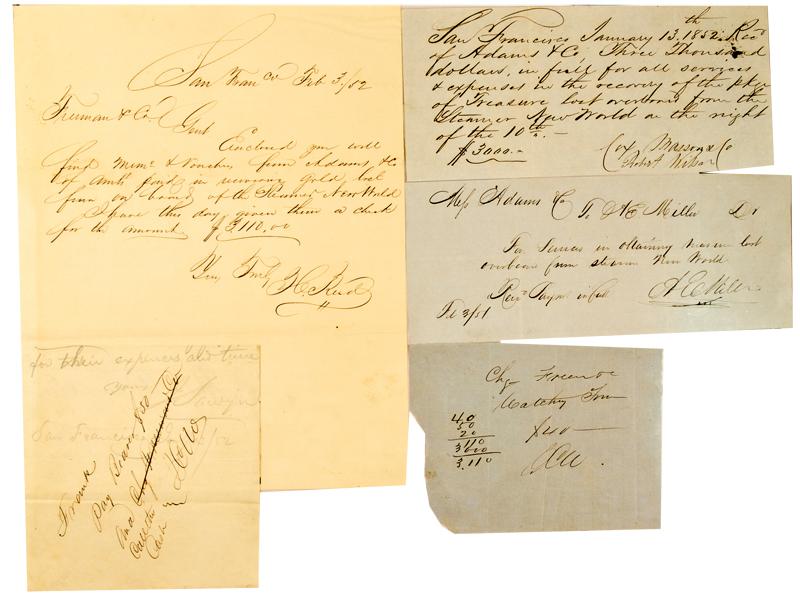 San Franco Feb 3/52
Freeman & Co
Gent
Enclosed you will
find Mem: & Voucher from Adams & Co
of amt paid in recovering gold lost
from on board of the Steamer New World
I have this day given them a check
for the amount. $3110.00
Your Truly
for their expences and time
yours
San Francisco /52
Frank
Pay Bearer $50
and Chg
Call the
Cash
San Francisco January 13th. 1852. Recd
of Adams & Co. Three Thousand
dollars, in full for all services
& expenses in the recovery of the pkge
of Treasure lost overboard from the
Steamer New World on the night
of the 10th. —
$3000.—
Cox Masson & Co
Robert Wilson
Mess Adams & Co To A E Miller Dr
For Services in obtaining treasure lost
overboard from steamer New World
Recd Paymt in full
Fe 3/51
Chg
40
50
20
3110
3000
3.110
$40 —